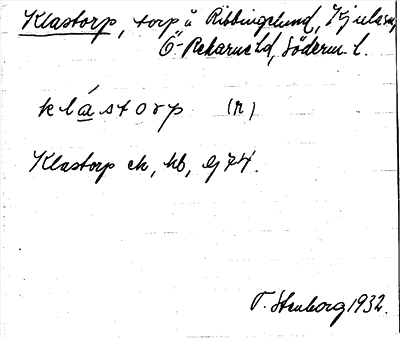 Klastorp, torp u Ribbingelund, Kjula sn,
Ö-Rekarne hd, Söderm. l.
klástorp (n)
Klastorp ek, hb, Gj 74.
T. Stenborg 1932.